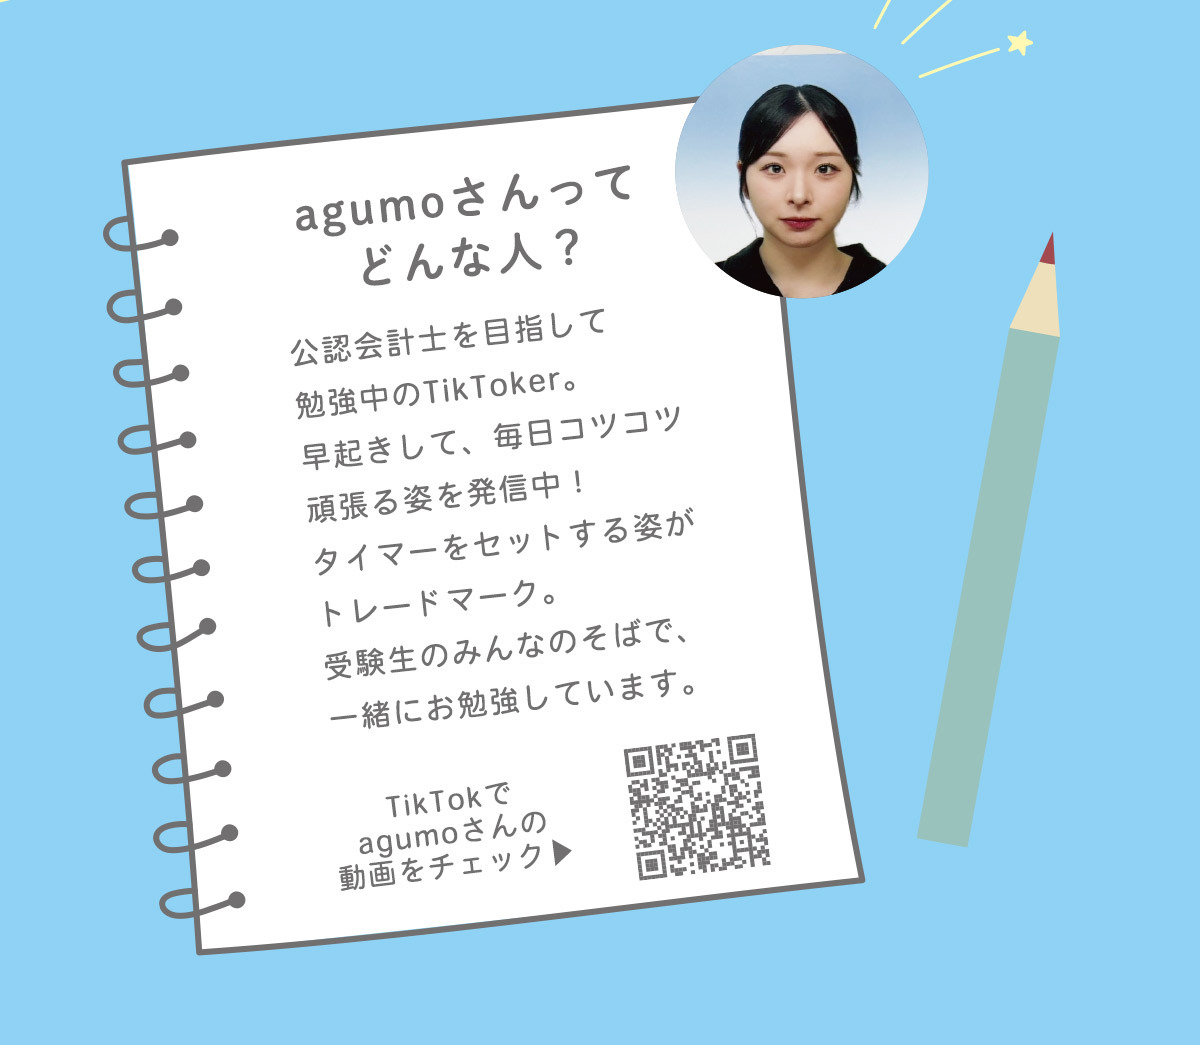 agumoさんって
どんな人？
公認会計士を目指して
勉強中のTikToker。
早起きして、毎日コツコツ
頑張る姿を発信中！
タイマーをセットする姿が
トレードマーク。
受験生のみんなのそばで、
一緒にお勉強しています。
TikTokで
agumoさんの
動画をチェック▶